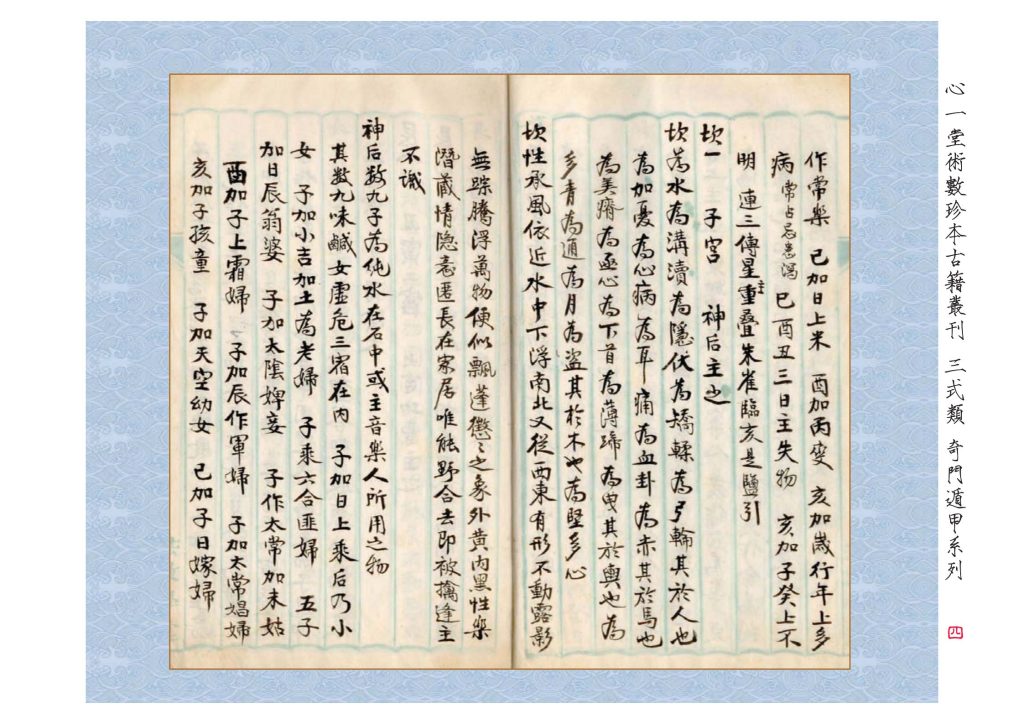 作常樂　已加日上米　酉加丙安　亥加歲行年上多
病常占忌患瀉　巳酉丑三日主失物　亥加子癸上不
明　連三傳星主重疊朱雀臨亥是鹽引
坎一　子宮　神后主之
坎為水為溝瀆為隱伏為矯輮為弓輪其於人也
為加憂為心病為耳痛為血卦為赤其於馬也
為美瘠為亟心為下首為薄蹄為曳其於輿也為
多眚為通為月為盜其於木也為堅多心
坎性承風依近水中下浮南北又從西東有形不動露影
無踪騰浮萬物便似飄蓬愆之象外黃內黑性樂
潛藏情隐意匿長在家居唯能野合去即被擒逢主
不識
神后数九子為純水在石中或主音樂人所用之物
其数九味鹹女虛危三宿在內　子加日上乘后乃小
女　子加小吉加土為老婦　子乘六合匪婦　五子
加日辰翁婆　子加太陰婢妾　子作太常加未姑
酉加子上霜婦　子加辰作軍婦　子加太常娼婦
亥加子孩童　子加天空幼女　已加子日嫁婦
心一堂術數珍本古籍叢刊　三式類　奇門遁甲系列
四